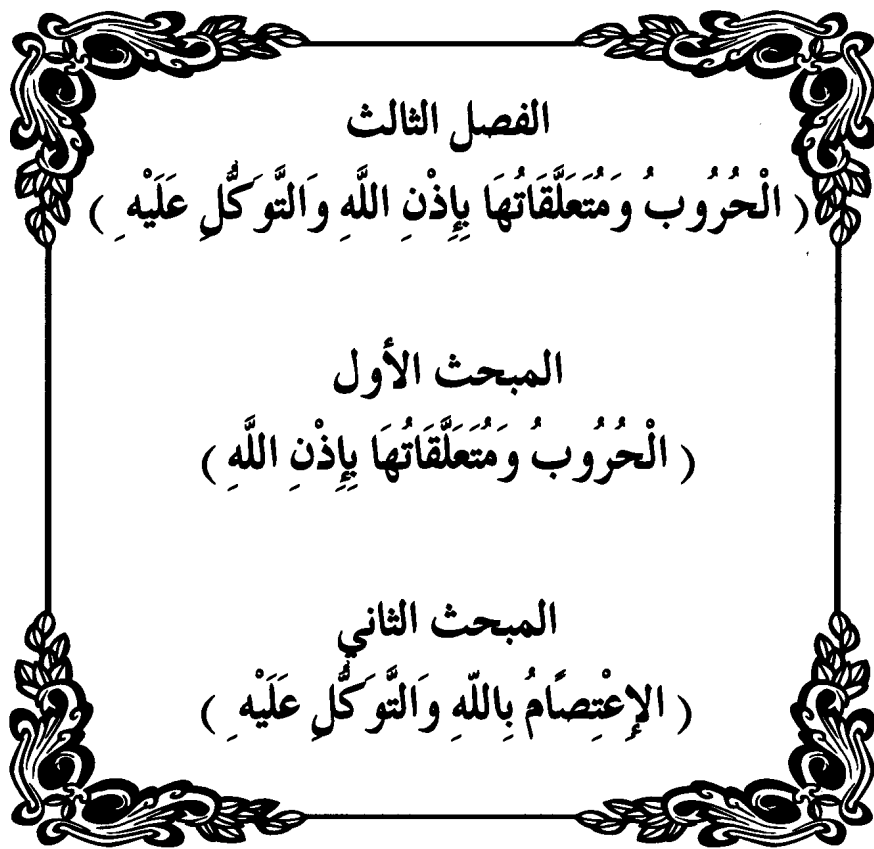 الفصل الثالث
( الْحُرُوبُ وَمُتَعَلَّقَاتُهَا بِإِذْنِ اللَّهِ وَالتَّوَكُّلِ عَلَيْهِ )
المبحث الأول
( الْحُرُوبُ وَمُتَعَلَّقَاتُهَا بِإِذْنِ اللَّهِ )
المبحث الثاني
( الإِعْتِصَامُ بِاللَّهِ وَالتَّوَكُّلِ عَلَيْهِ )